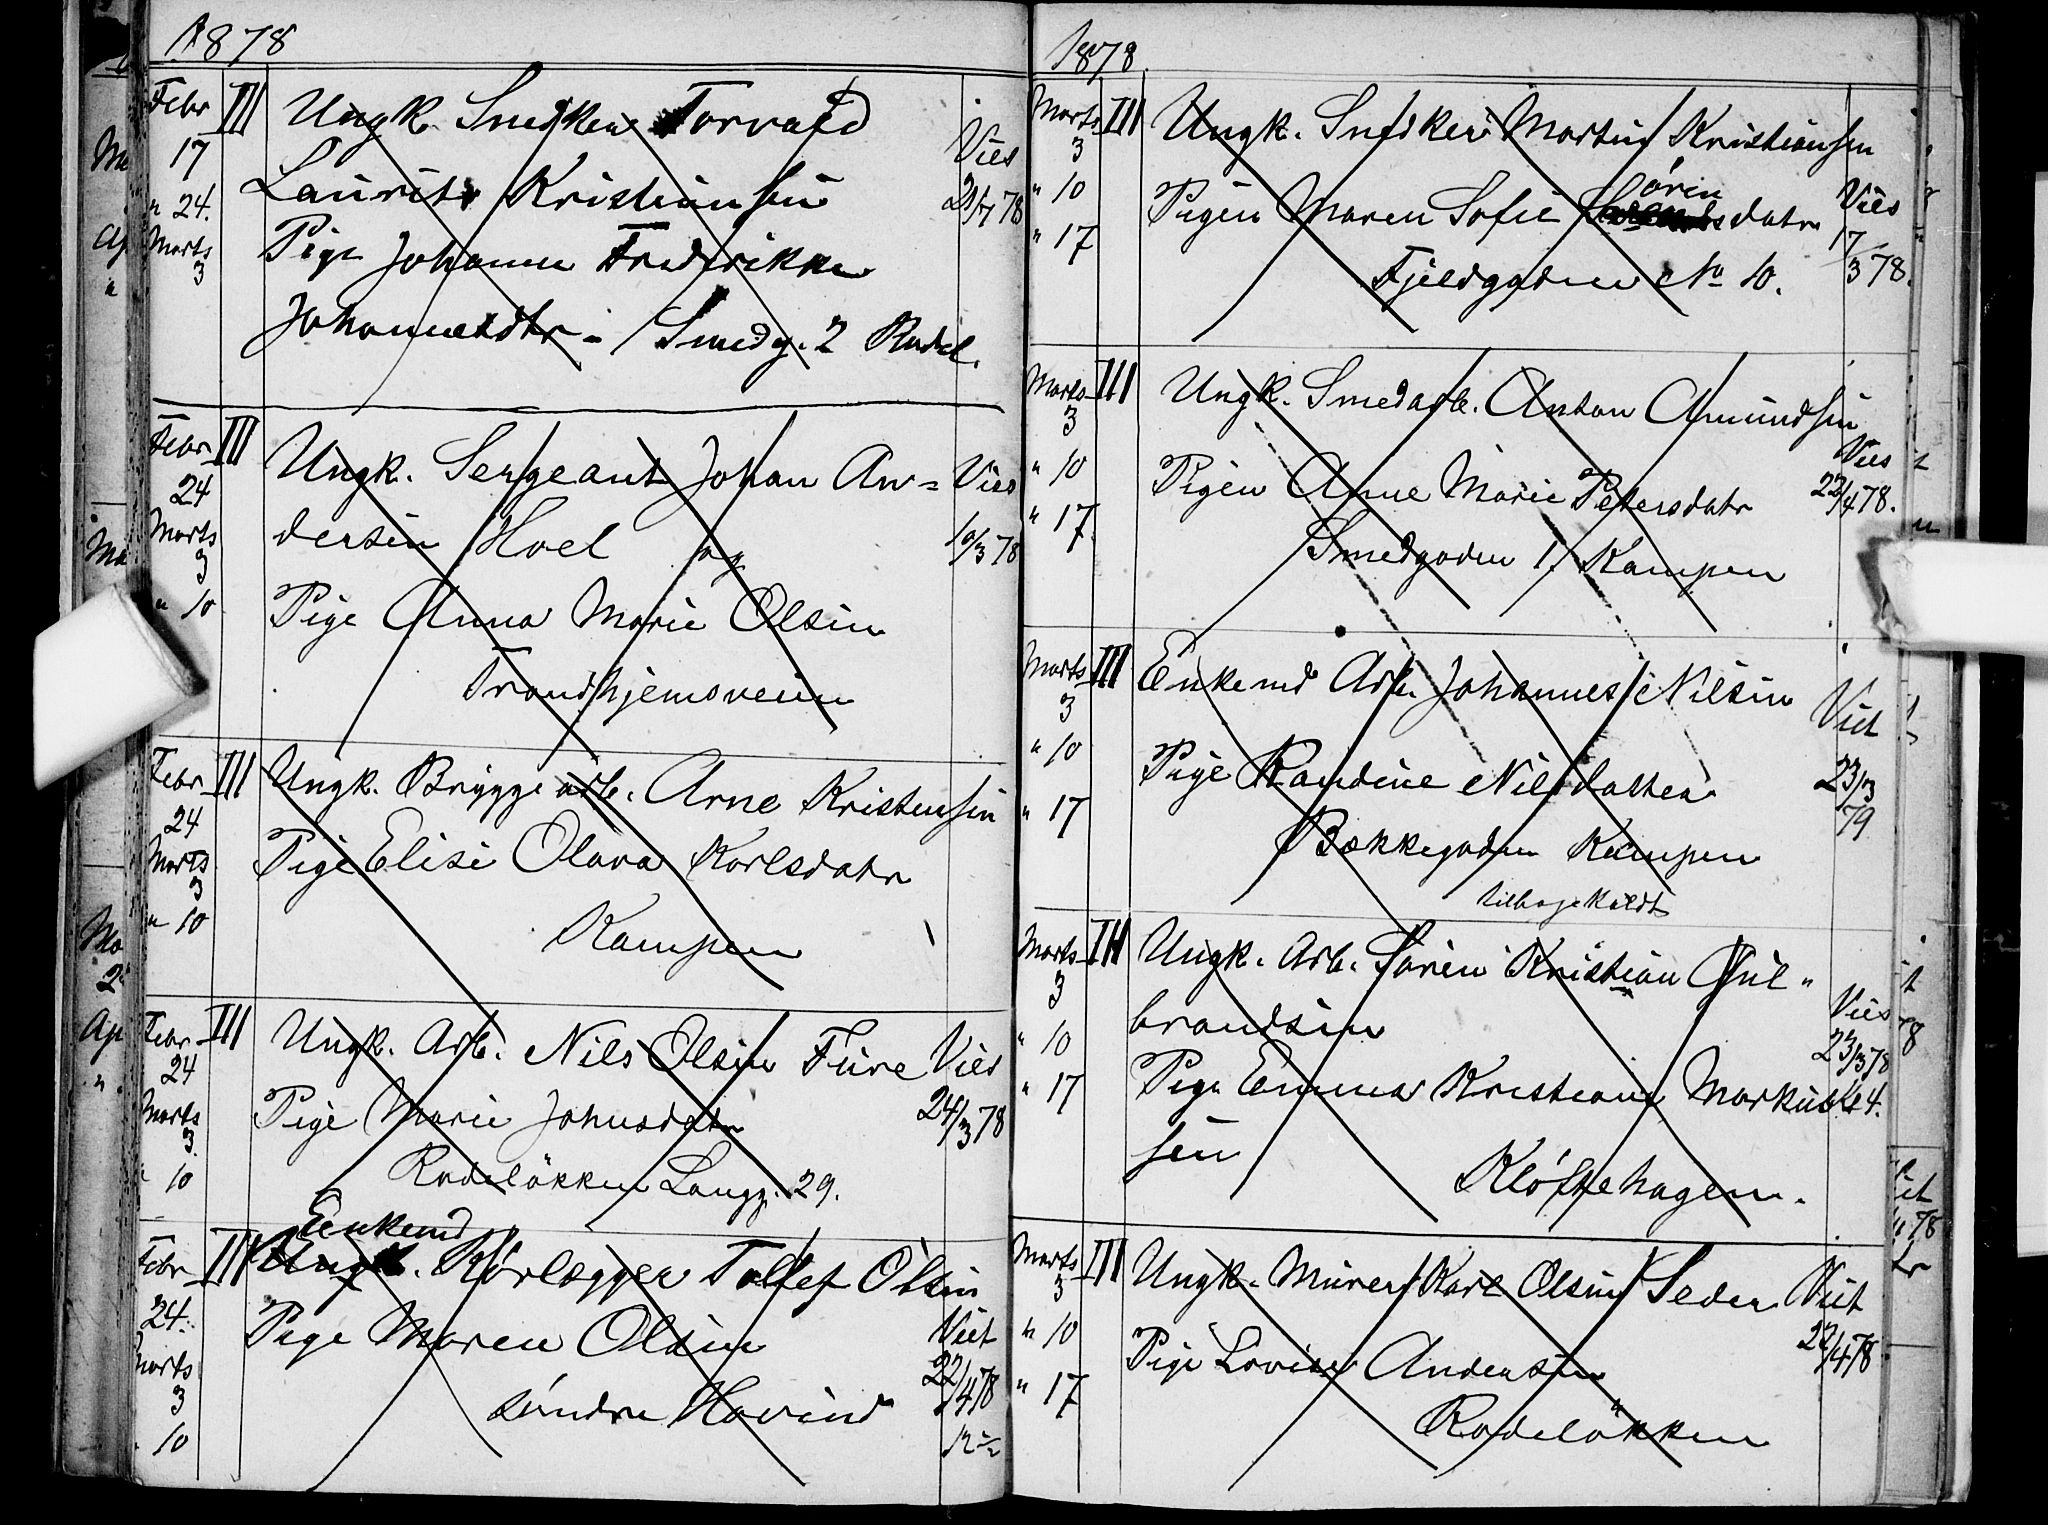 1878
Febr III Ungk. Snedker Torvald
17 Laurits Kristiansen Vies
" 24. 21/7 78
Marts Pige Johanne Fredrikke
3
Johannesdtr - Smedg. 2 Rodel.
Febr III Ungk. Sergeant Johan An= Vies
24
Marts dersen Hoel og 10/3 78
3
" 10 Pige Anna Marie Olsen
Trondhjemsveien
Febr III Ungk. Bryggearb. Arne Kristensen
24
Marts Pige Elise Olava Karlsdatr
3
" 10 Kampen
Febr III Ungk. Arb. Nils Olsen Fure Vies
24
Marts Pige Marie Johnsdatr 24/3 78
3.
" 10 Rodeløkken Langg. 29.
Enkemd
Febr III Ungk. Rørlægger Tollef Olsen
24. Pige Maren Olsen Viet
Marts 22/4 78
3 søndre Hovind
10
1878.
Marts III Ungk. Snedker Martin Kristiansen
3
" 10 Pigen Maren Sofie Sørensdatr Vies
" 17 17/3 78.
Fjeldgaden No 10.
Marts III Ungk. Smedarb. Anton Amundsen
3 Vies
" 10 Pigen Anne Marie Petersdatr 22/4 78.
" 17. Smedgaden 1. Kampen
Marts III Enkemd Arb. Johannes Nilsen
3 Viet
" 10 Pige Randine Nilsdatter 23/3
" 17 79
Bækkegaden Kampen
tilbagekaldt
Marts III Ungk. Arb. Søren Kristian Gul"
3 Vies
" 10 brandsen 23/3 78
" 17 Pige Emma Kristiane Markus Kl 4.
sen
Kløftehagen.
Marts III Ungk. Murer Karl Olsen Seder Viet
3
" 10 Pige Lovise Andersen 22/4 78
" 17
Rodeløkken